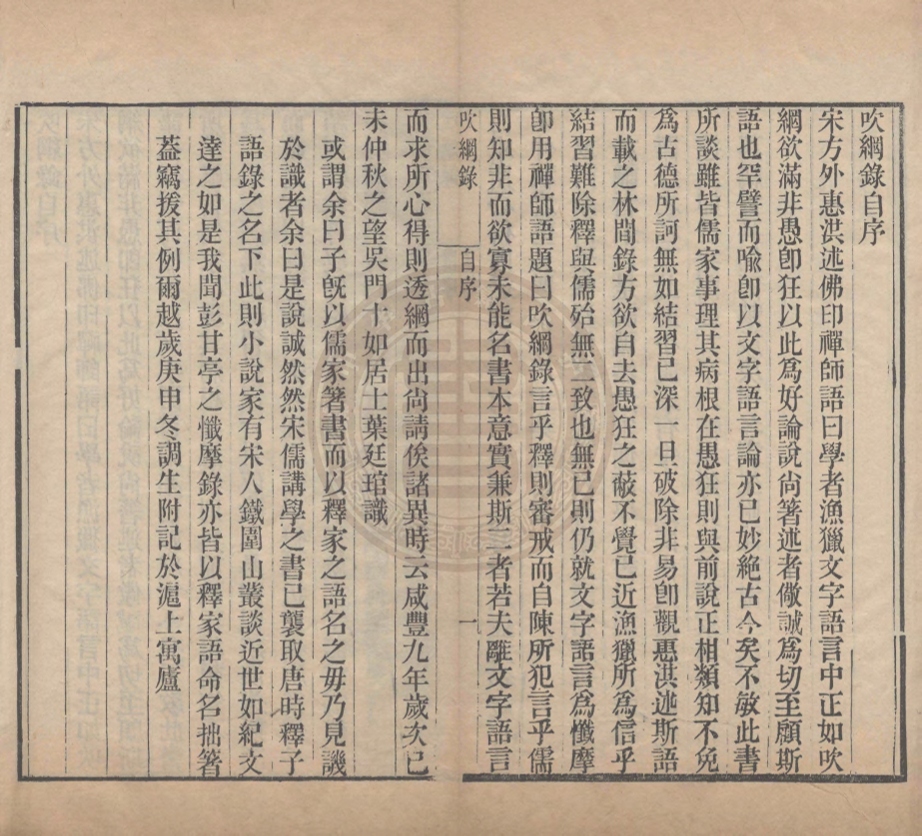 吹網錄自序
宋方外惠洪述佛印禪師語曰學者漁獵文字語言中正如吹
網欲滿非愚卽狂以此爲好論說尙箸述者儆誠爲切至顧斯
語也罕譬而喩卽以文字語言論亦已妙絕古今矣不敏此書
所談雖皆儒家事理其病根在愚狂則與前說正相類知不免
爲古德所訶無如結習已深一旦破除非易卽觀惠洪述斯語
而載之林間錄方欲自去愚狂之蔽不覺已近漁獵所爲信乎
結習難除釋與儒殆無二致也無已則仍就文字語言爲懺摩
卽用禪師語題曰吹網錄言乎釋則審戒而自陳所犯言乎儒
則知非而欲寡未能名書本意實兼斯二者若夫離文字語言
吹網錄 自序 一
而求所心得則透網而出尙請俟諸異時云咸豐九年歲次己
未仲秋之望吳門十如居士葉廷琯識
或謂余曰子旣以儒家箸書而以釋家之語名之毋乃見譏
於識者余曰是說誠然然宋儒講學之書已襲取唐時釋子
語錄之名下此則小說家有宋人鐵圍山叢談近世如紀文
達之如是我聞彭甘亭之懺摩錄亦皆以釋家語命名拙箸
蓋竊援其例爾越歲庚申冬調生附記於滬上寓廬